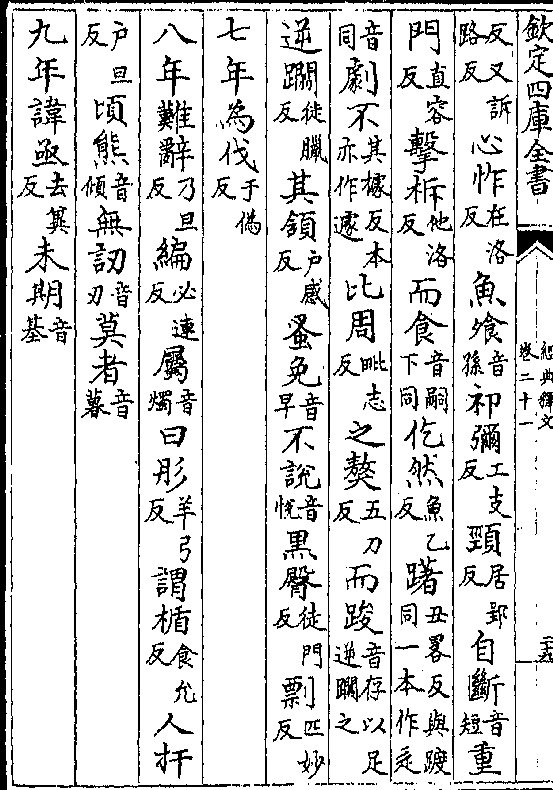 欽定四庫全書
經典釋文
卷二十一
反又訴路反心怍在洛反魚飧音孫祁彌工支反頸居郢反自斷音短重
門直容反擊柝他洛反而食音嗣下同仡然魚乙反躇丑畧反與踱同一本作辵
音同劇不其據反本亦作遽比周毗志反之獒五刀反而踆音存以足逆蹋之
逆蹋徒臘反其頷户感反蚤免音早不說音悅黑臀徒門反剽匹妙反
七年為伐于偽反
八年難辭乃旦反編必連反屬音燭曰肜羊弓反謂楯食允反人扞
户旦反頃熊音傾無訒音刃莫者音暮
九年諱亟去冀反未期音基